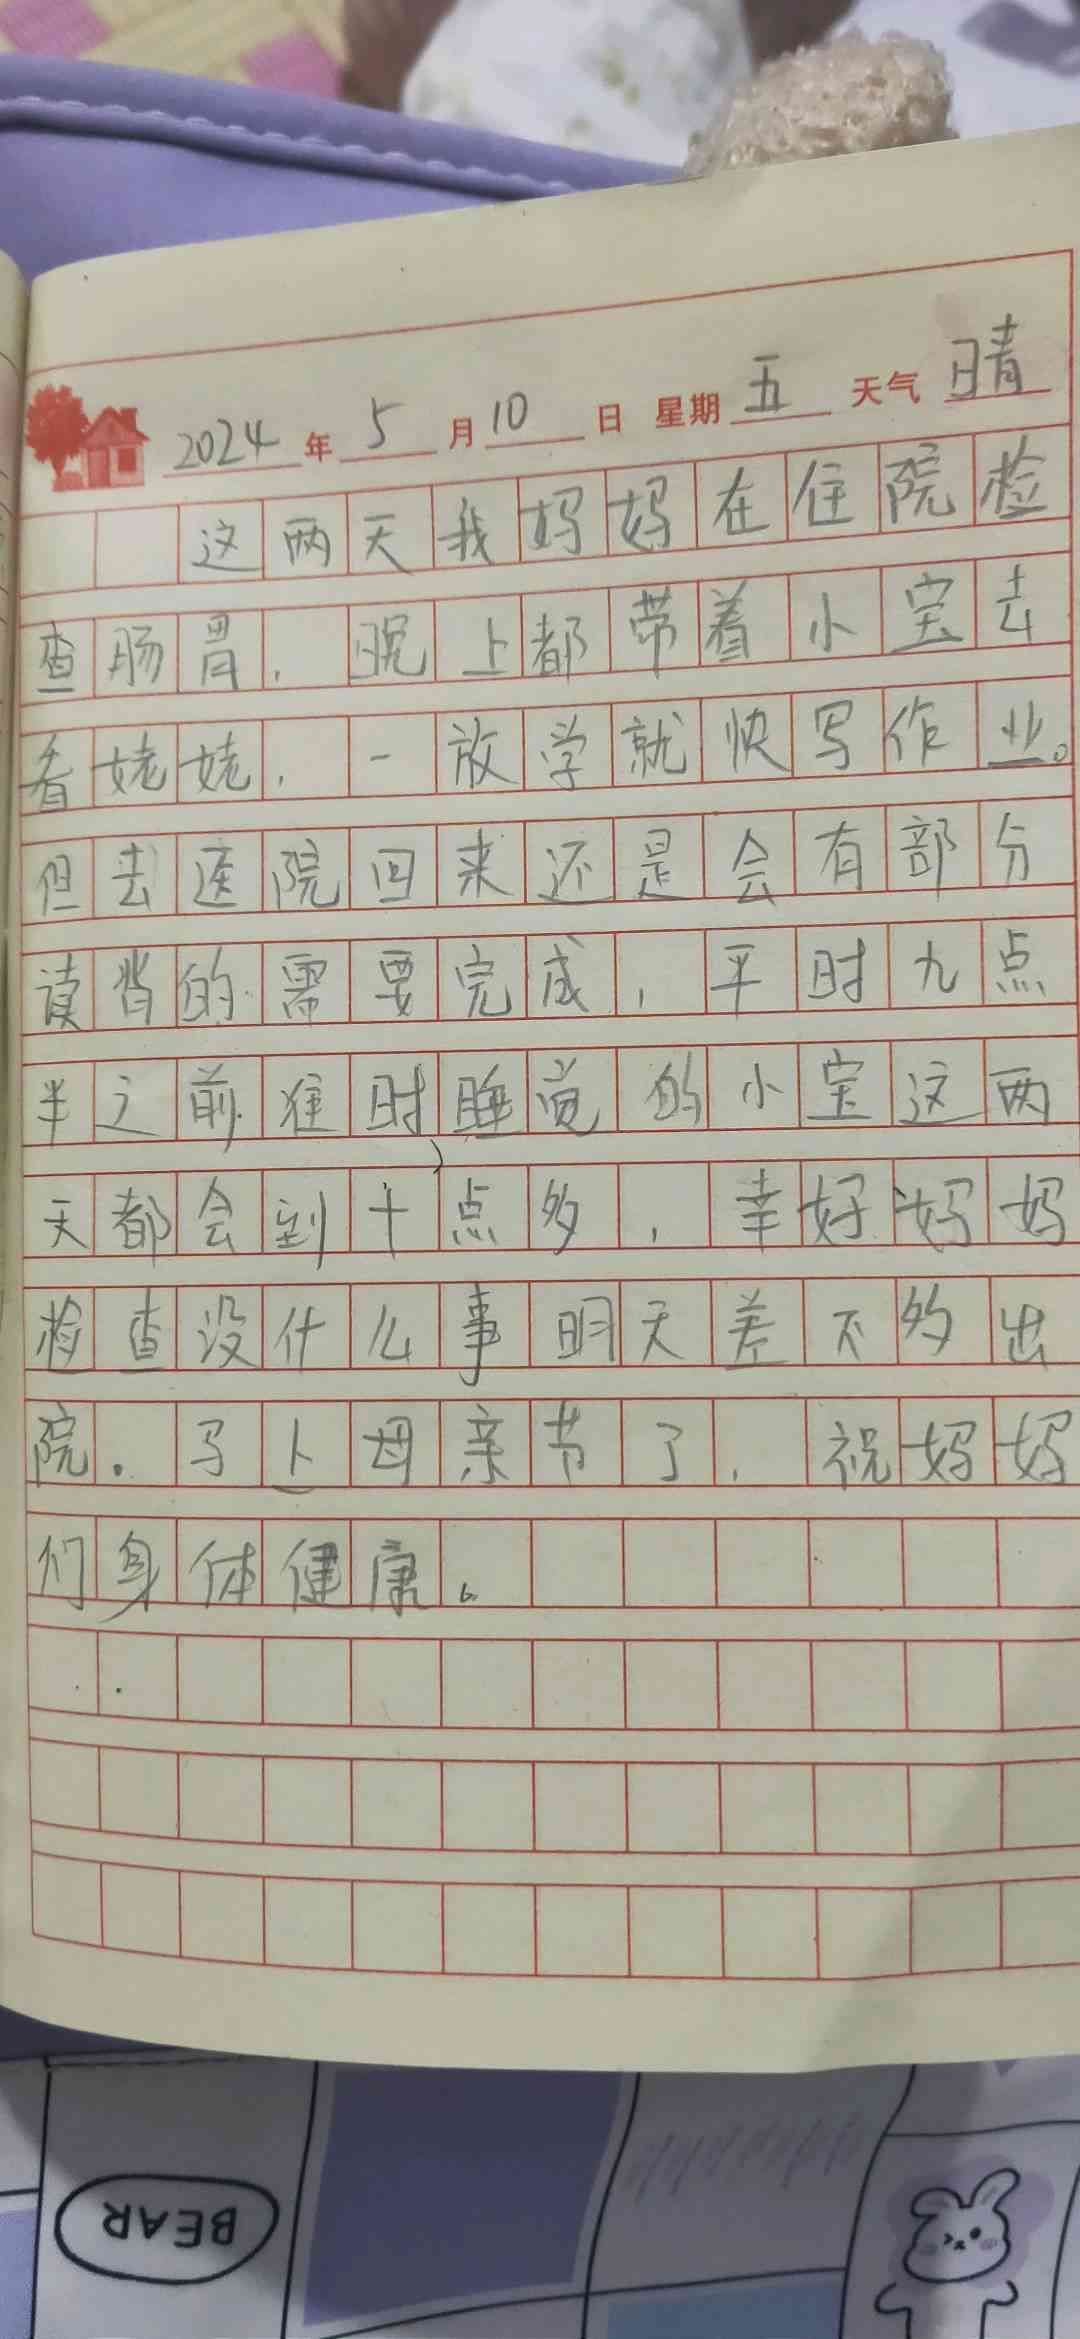 2024年5月10日 星期五 天气晴
这两天我妈妈在住院检
查肠胃，晚上都带着小宝去
看姥姥，一放学就快写作业。
但去医院回来还是会有部分
读背的需要完成，平时九点
半之前准时睡觉的小宝这两
天都会到十点多，幸好妈妈
检查没什么事明天差不多出
院。马上母亲节了，祝妈妈
们身体健康。
BEAR